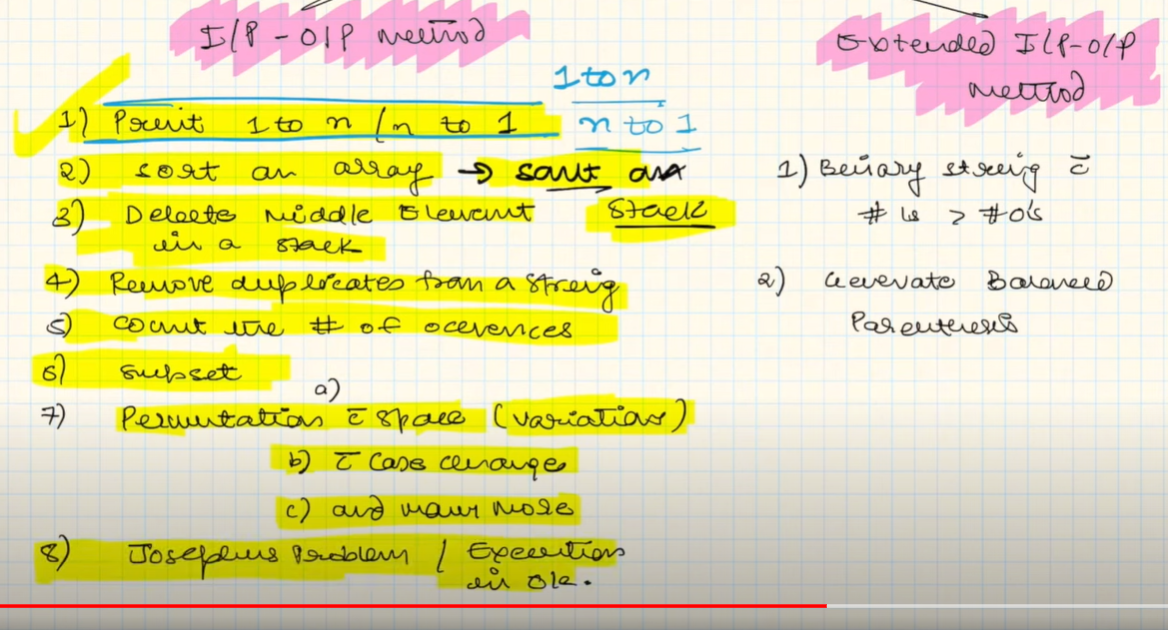 I/P - O/P method
1 to n
n to 1
1) Print 1 to n / n to 1
2) sort an array → sort an
stack
3) Delete Middle Element
in a stack
4) Remove duplicates from a string
5) count the # of occurences
6) subset
a)
7) Permutation c̄ space (variation)
b) c̄ case change
c) and many more
8) Josephus Problem / Execution
in
Extended I/P-O/P
method
1) Binary string c̄
# 1s > # 0's
2) Generate Balanced
Parenthesis